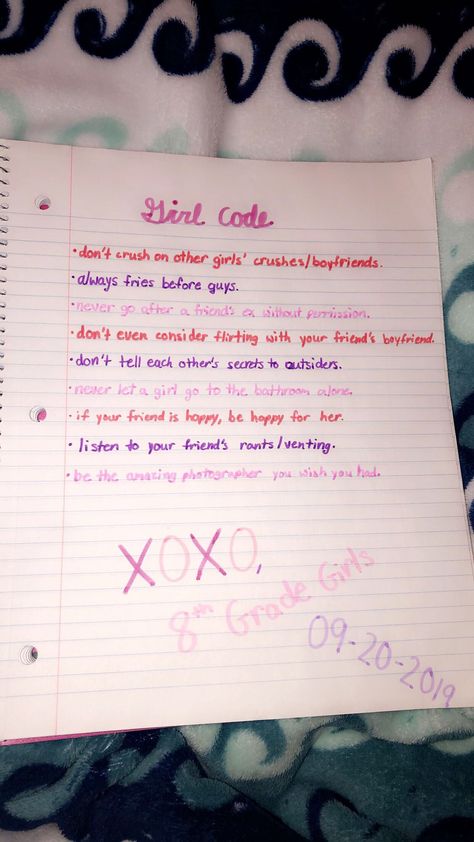 Girl Code
• don't crush on other girls' crushes/boyfriends.
• always fries before guys.
• never go after a friend's ex without permission.
• don't even consider flirting with your friend's boyfriend.
• don't tell each other's secrets to outsiders.
• never let a girl go to the bathroom alone.
• if your friend is happy, be happy for her.
• listen to your friend's rants/venting.
• be the amazing photographer you wish you had.
XOXO,
8th Grade Girls
09-20-2019